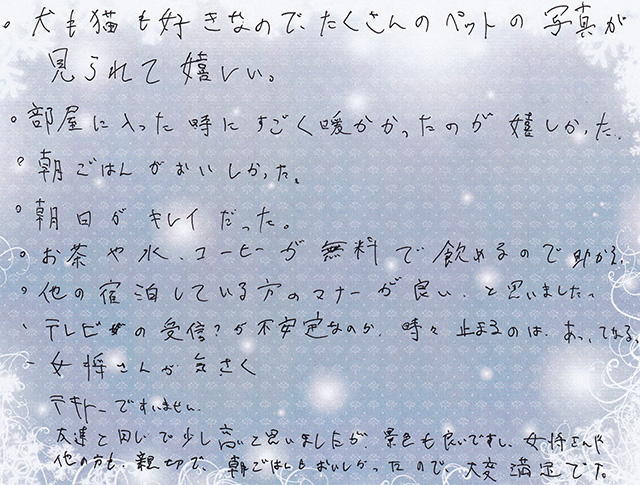 。犬も猫も好きなので、たくさんのペットの写真が
見られて嬉しい。
。部屋に入った時にすごく暖かかったのが嬉しかった。
。朝ごはんがおいしかった。
。朝日がキレイだった。
。お茶や水、コーヒーが無料で飲めるので助かる。
。他の宿泊している方のマナーが良い、と思いました。
・テレビの受信?が不安定なのか、時々止まるのは、あってなる。
－女将さんが気さく
テキトーですいません。
友達と同じで少し高いと思いましたが景色も良いですし、女将さんや
他の方も、親切で、朝ごはんもおいしかったので、大変満足です。